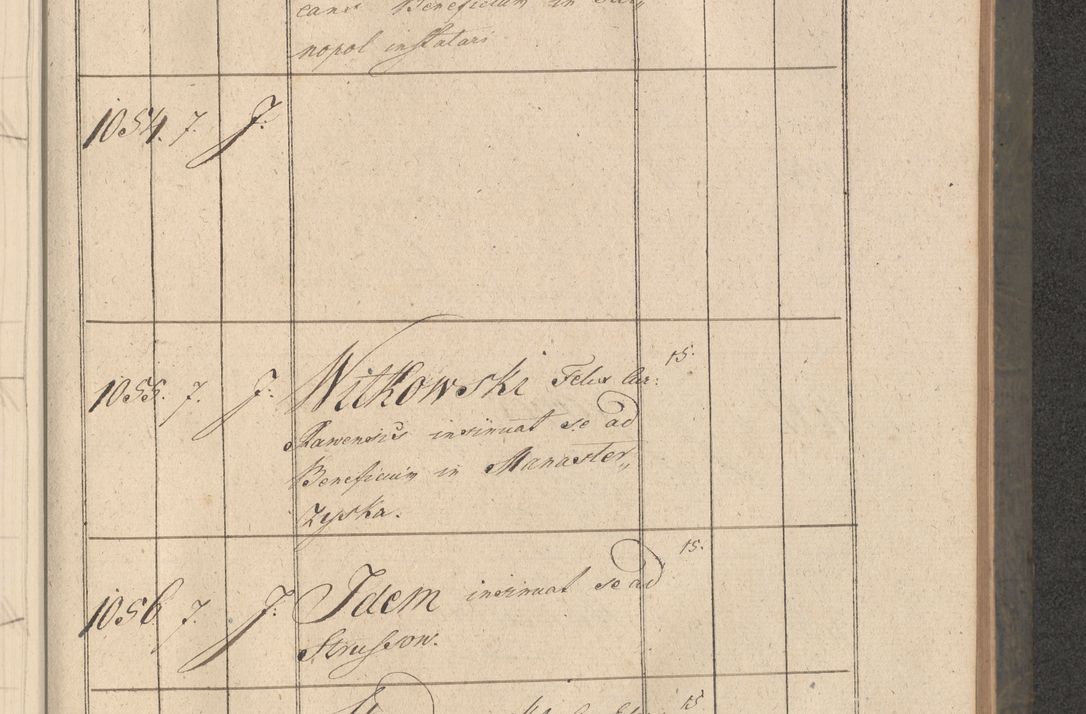 canus Beneficium in Tar„
nopol installari
1054. 7. J:
1055. 7. J: Witkowski Felix Cur: 15.
Rawensis insinuat se ad
Beneficium in Manaster„
zyska.
1056 7. J: Idem insinuat se ad 15.
Strussow.
15